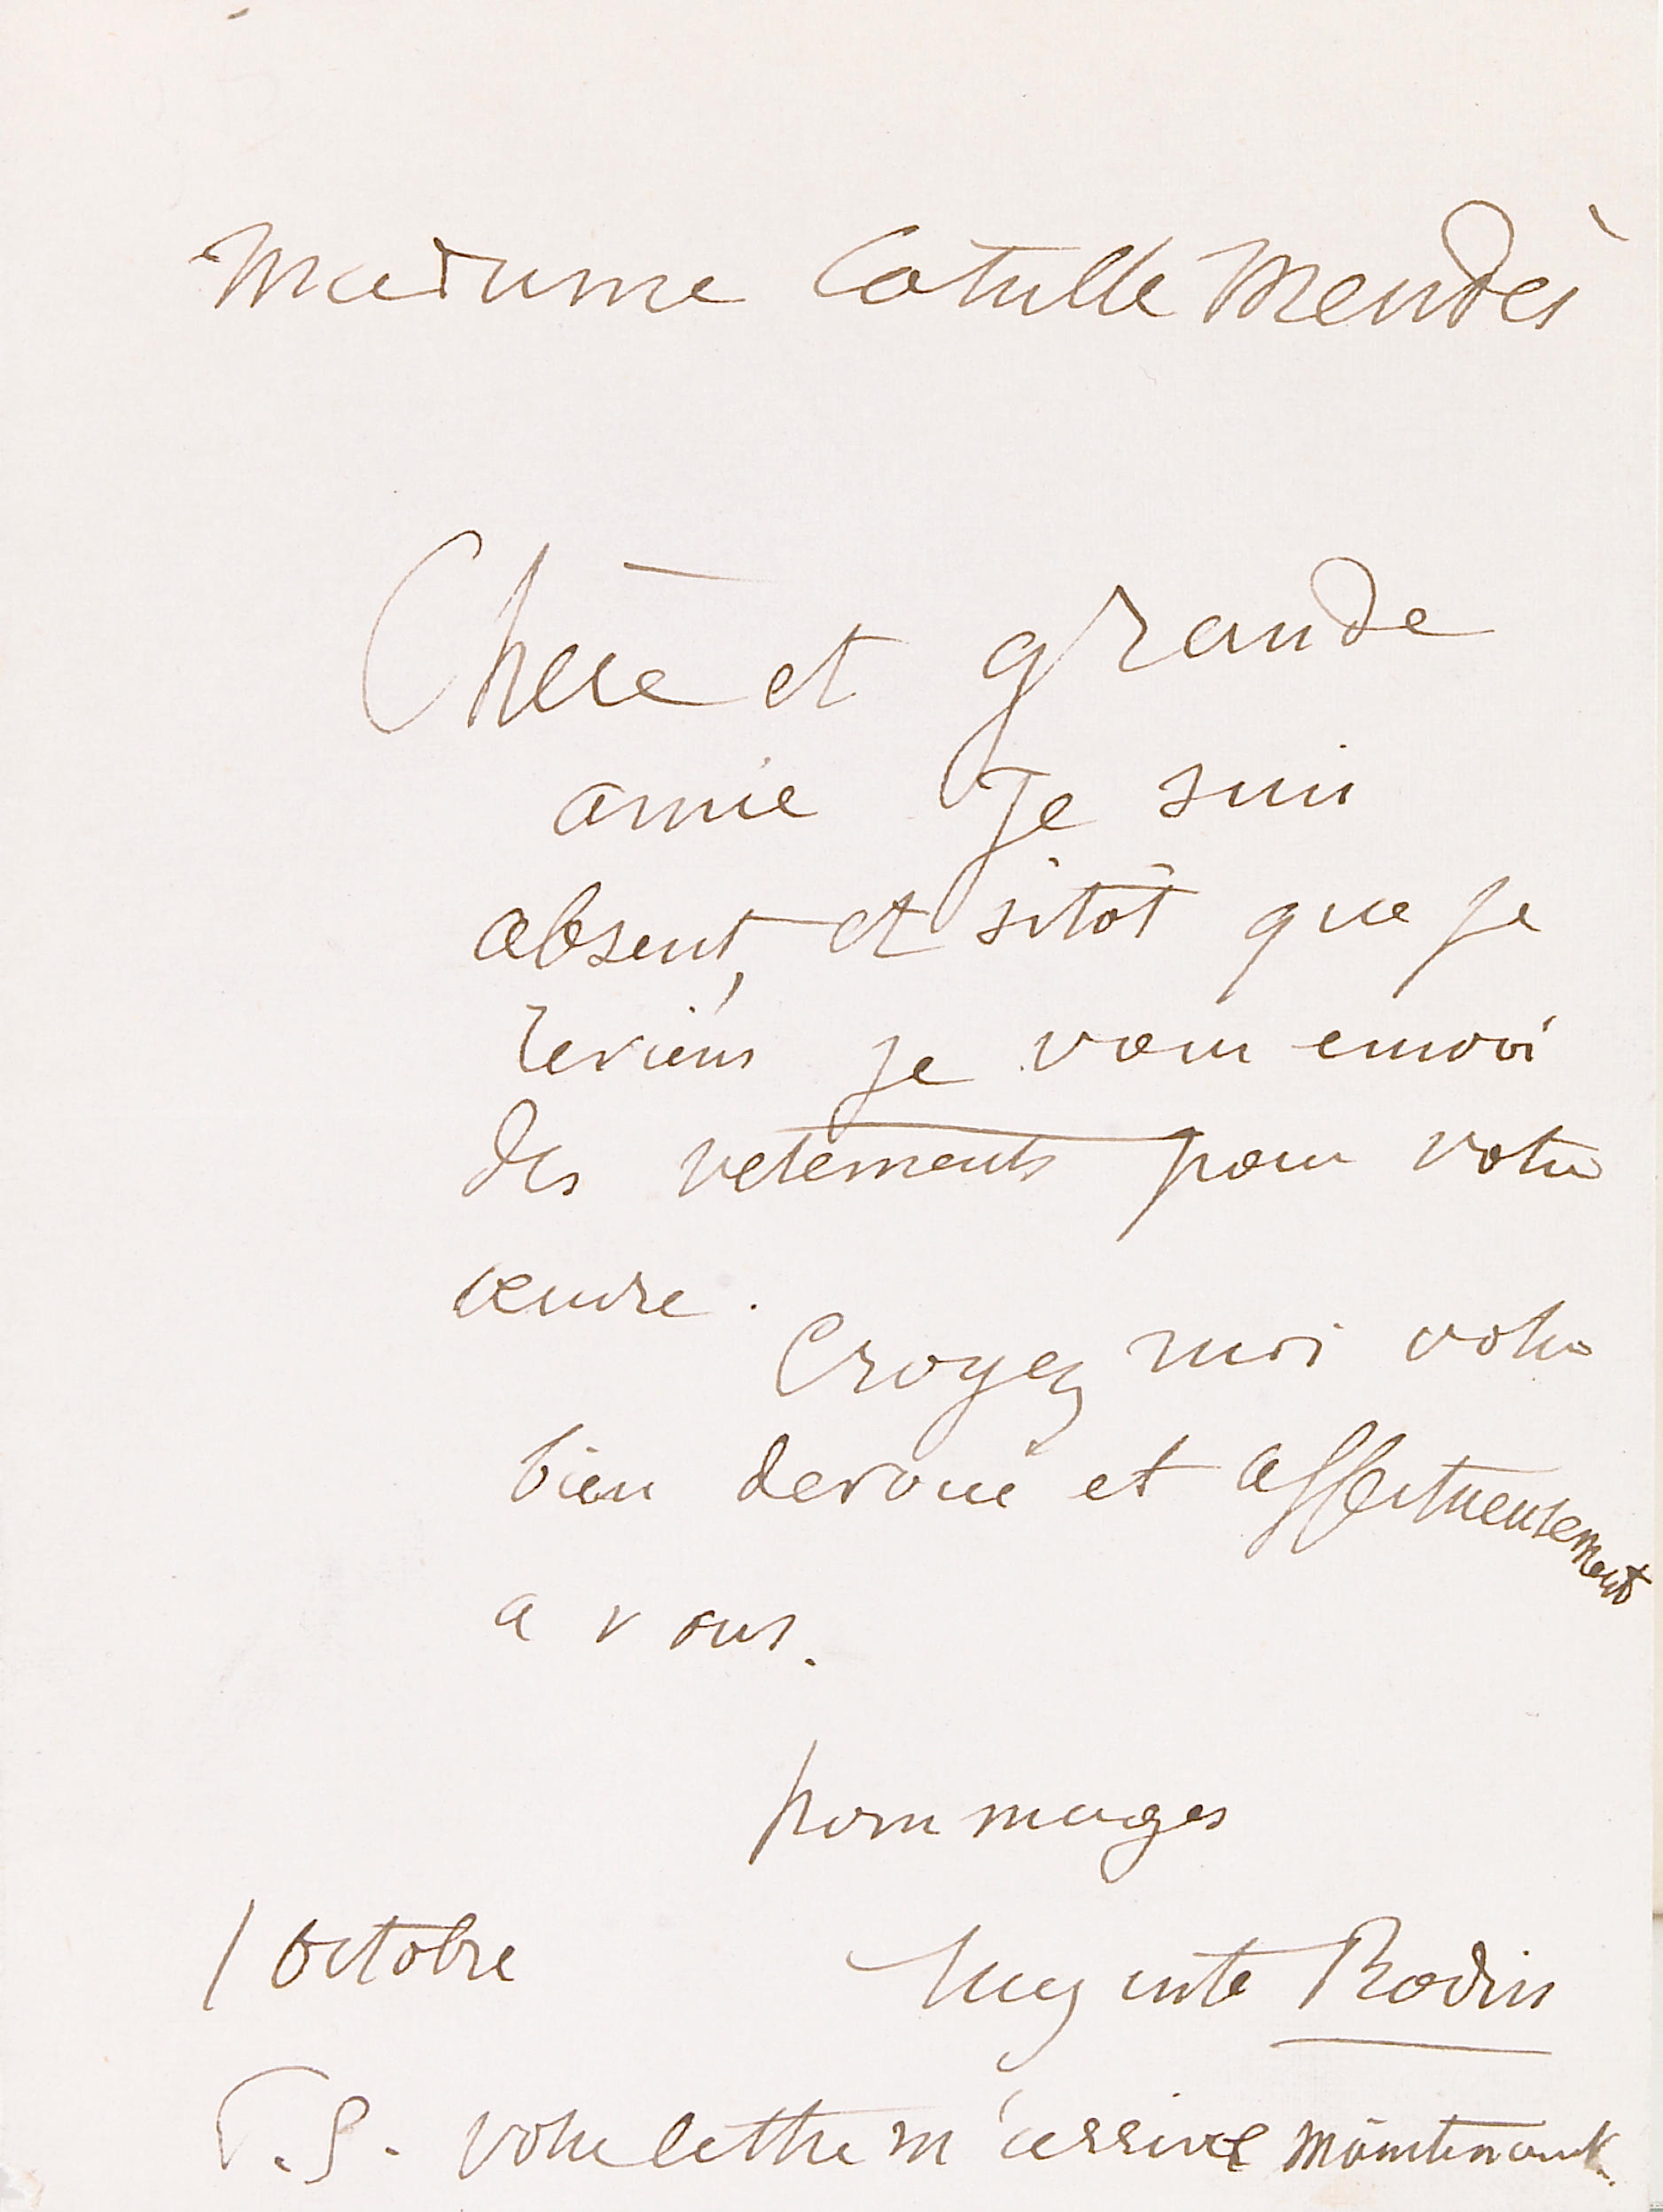 Madame Catulle Mendès
Chère et grande
amie Je suis
absent, et sitôt que je
reviens je vous envoi
des vêtements pour votre
œuvre.
Croyez moi votre
bien devoué et affectueusement
a vous.
hommages
1 Octobre Auguste Rodin
P.S. votre lettre m'arrive maintenant.